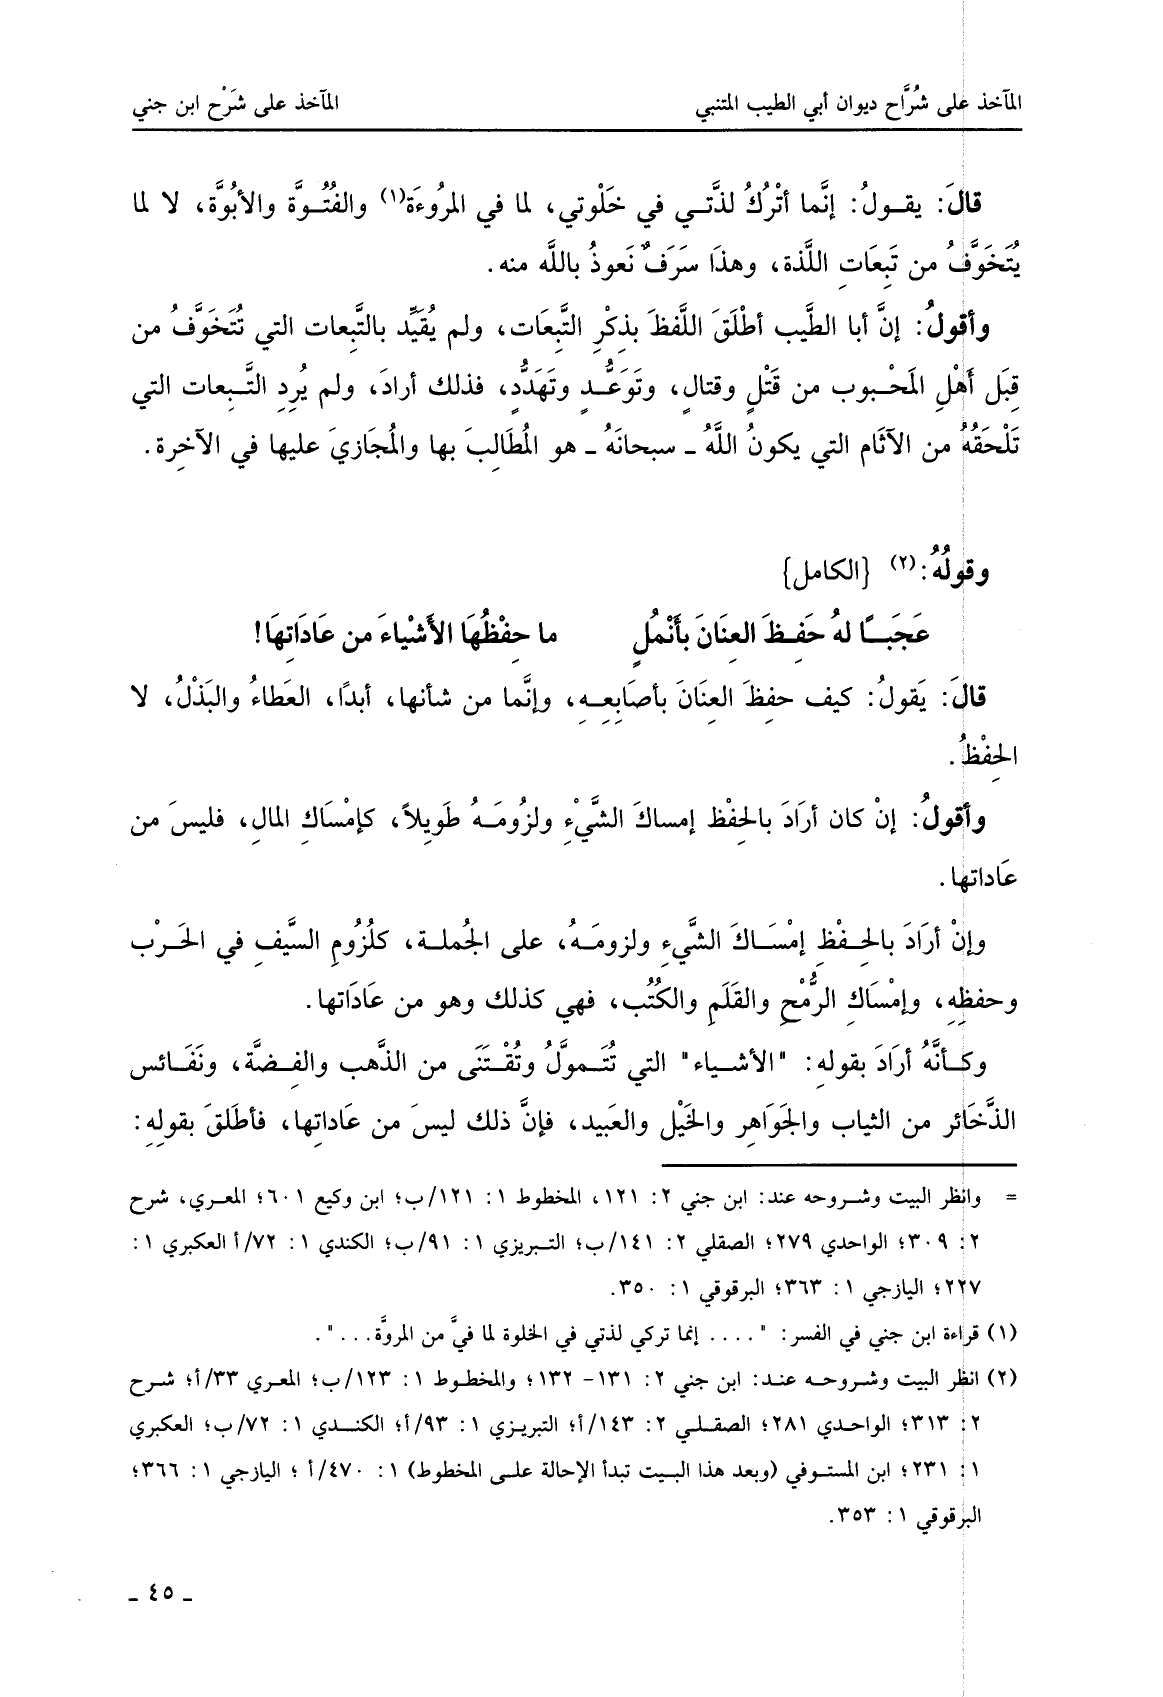 المآخذ على شُرَّاح ديوان أبي الطيب المتنبي المآخذ على شَرْح ابن جني
قالَ: يقولُ: إنَّما أتْرُكُ لذَّتي في خَلْوتي، لما في المرُوءَة(١) والفُتُوَّة والأبُوَّة، لا لما
يُتَخَوَّفُ من تَبِعَاتِ اللَّذة، وهذَا سَرَفٌ نَعوذُ باللَّه منه.
وأقولُ: إنَّ أبا الطَّيب أطْلَقَ اللَّفظَ بذِكْرِ التَّبِعَات، ولم يُقَيِّد بالتَّبِعات التي تُتَخَوَّفُ من
قِبَل أَهْلِ المَحْبوب من قَتْلٍ وقتالٍ، وتَوَعُّدٍ وتَهَدُّدٍ، فذلك أرادَ، ولم يُرِدِ التَّبِعات التي
تَلْحَقُهُ من الآثَام التي يكونُ اللَّهُ ـ سبحانَهُ ـ هو المُطَالِبَ بها والمُجَازيَ عليها في الآخِرة.
وقولُهُ:(٢) {الكامل}
عَجَبًا لهُ حَفِظَ العِنَانَ بأَنْمُلٍ ما حِفْظُهَا الأَشْياءَ من عَادَاتِهَا!
قالَ: يَقولُ: كيف حفِظَ العِنَانَ بأصَابِعِهِ، وإنَّما من شأنها، أبدًا، العَطاءُ والبَذْلُ، لا
الحِفْظُ.
وأقولُ: إنْ كان أرَادَ بالحِفْظ إمساكَ الشَّيْءِ ولزُومَهُ طَويلاً، كإمْسَاكِ المالِ، فليسَ من
عَاداتها.
وإنْ أرَادَ بالحِفظِ إمْسَاكَ الشَّيءِ ولزومَهُ، على الجُملة، كلُزُومِ السَّيفِ في الحَرْب
وحفظِهِ، وإمْسَاكِ الرُّمْحِ والقَلَمِ والكُتُب، فهي كذلك وهو من عَادَاتها.
وكأنَّهُ أرَادَ بقولهِ: "الأشياء" التي تُتَموَّلُ وتُقْتَنَى من الذَّهب والفِضَّة، ونَفَائس
الذَّخَائر من الثياب والجَوَاهِر والخَيْل والعَبيد، فإنَّ ذلك ليسَ من عَاداتِها، فأطَلقَ بقولِهِ:
= وانظر البيت وشروحه عند: ابن جني ٢: ١٢١، المخطوط ١: ١٢١/ب؛ ابن وكيع ٦٠١؛ المعري، شرح
٢: ٣٠٩؛ الواحدي ٢٧٩؛ الصقلي ٢: ١٤١/ب؛ التبريزي ١: ٩١/ب؛ الكندي ١: ٧٢/أ العكبري ١:
٢٢٧؛ اليازجي ١: ٣٦٣؛ البرقوقي ١: ٣٥٠.
(١) قراءة ابن جني في الفسر: ".... إنما تركي لذتي في الخلوة لما فيَّ من المروَّة...".
(٢) انظر البيت وشروحه عند: ابن جني ٢: ١٣١- ١٣٢؛ والمخطوط ١: ١٢٣/ب؛ المعري ٣٣/أ؛ شرح
٢: ٣١٣؛ الواحدي ٢٨١؛ الصقلي ٢: ١٤٣/أ؛ التبريزي ١: ٩٣/أ؛ الكندي ١: ٧٢/ب؛ العكبري
١: ٢٣١؛ ابن المستوفي (وبعد هذا البيت تبدأ الإحالة على المخطوط) ١: ٤٧٠/أ ؛ اليازجي ١: ٣٦٦؛
البرقوقي ١: ٣٥٣.
ـ ٤٥ ـ